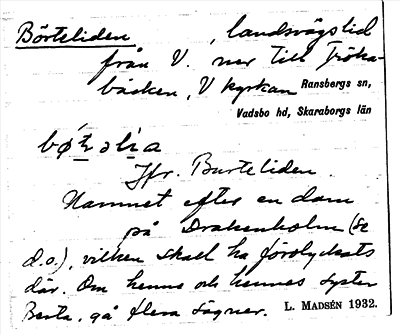 Börteliden, landsvägslid
från V. ner till Tröka-
bäcken, V kyrkan Ransbergs sn,
Vadsbo hd, Skaraborgs län
Jfr. Burteliden.
Namnet efter en dam
på Drakenholm (se
d.o.), vilken skall ha förolyckats
där. Om henne och hennes syster
Berta, gå flera sägner. L. MADSÉN 1932.